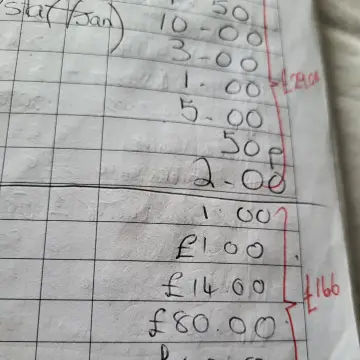 50
(staff/Jan) 10-00
3-00
1.00
5-00
50p
2-00
1.00
£1.00
£14.00
£166
£80.00